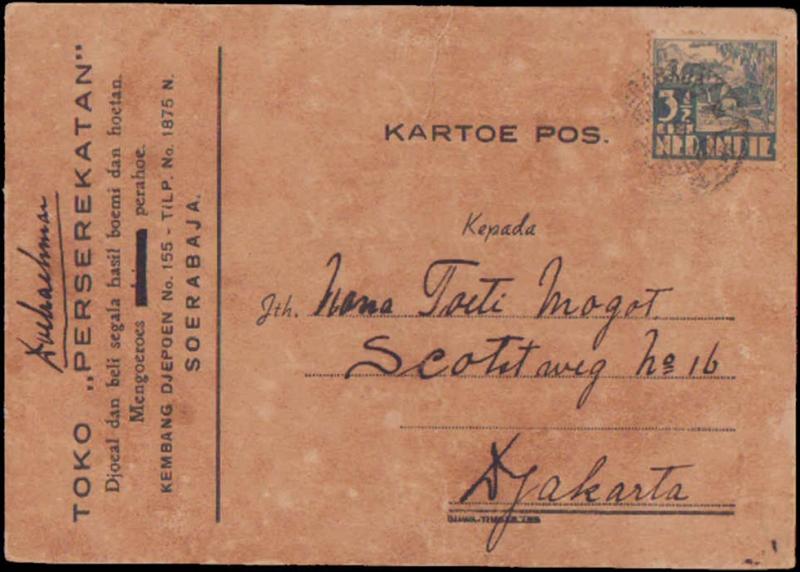 TOKO „PERSEREKATAN"
Djoeal dan beli segala hasil boemi dan hoetan.
Mengoeroes perahoe.
KEMBANG DJEPOEN No. 155 - TiLP. No. 1875 N.
SOERABAJA.
KARTOE POS.
3½
CENT
NED. INDIE
Kepada
Jth. Nona Toeti Mogot.
Scotstweg No 16
Djakarta